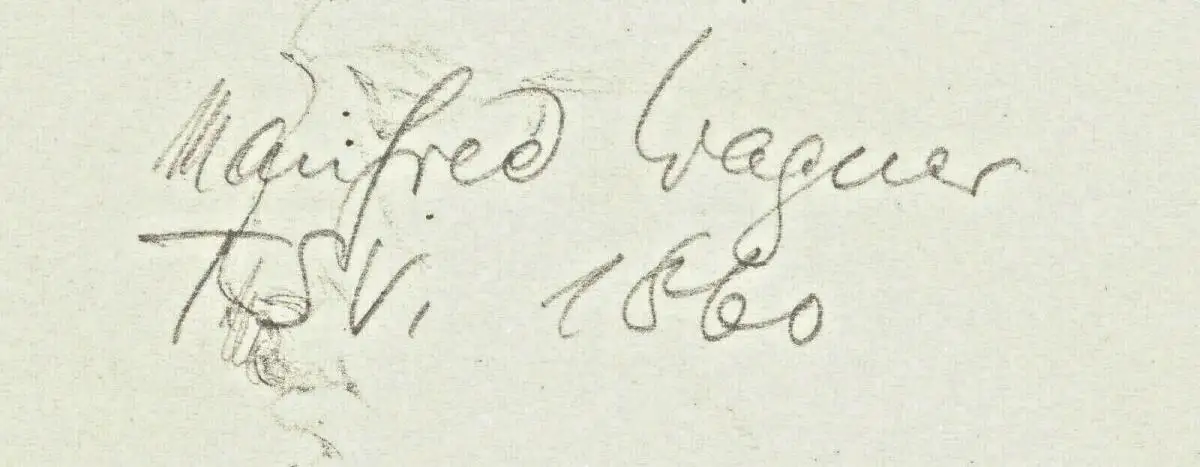 Manfred Wagner
TSV. 1860